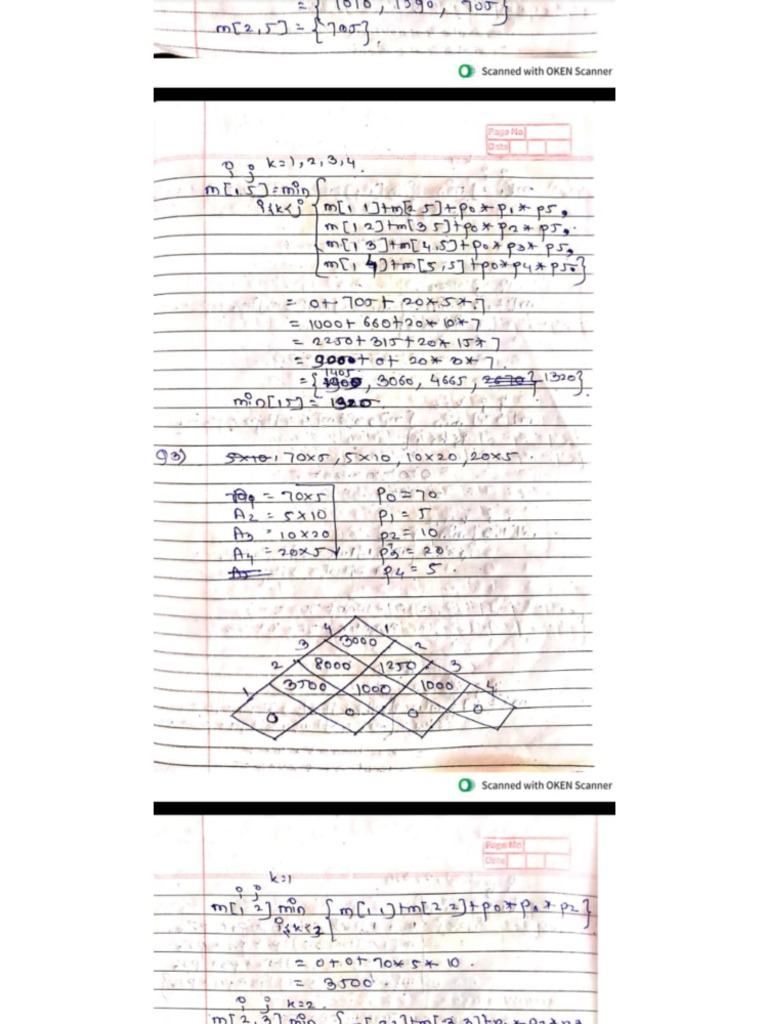 = { 1010, 1390, 705}
m[2,5] = {705}.
Scanned with OKEN Scanner
Page No.
Date
i j k=1,2,3,4.
m[1,5]=min
i≤k<j { m[1 1]+m[2 5]+p0*p1*p5,
m[1 2]+m[3 5]+p0*p2*p5,
m[1 3]+m[4,5]+p0*p3*p5,
m[1, 4]+m[5,5]+p0*p4*p5.}
= 0+705+20*5*7
= 1000+660+20*10*7
= 2250+315+20*15*7
1405
, 3060, 4665, 1320}.
min[15] = 1320.
Q3) 5x10, 70x5, 5x10, 10x20, 20x5.
= 70x5 p0=70
A2 = 5x10 p1=5
A3 = 10x20 p2=10
A4 = 20x5 p3=20
A5 p4=5.
4 1
3 3000 2
2 8000 1250 3
1 3500 1000 1000 4
0 0 0 0
Scanned with OKEN Scanner
Page No
Date
k=1
i j
m[1,2] min { m[1,1]+m[2 2]+p0*p1*p2}
i≤k<j
= 0+0+70*5*10.
= 3500
i j k=2.
m[2,3] min